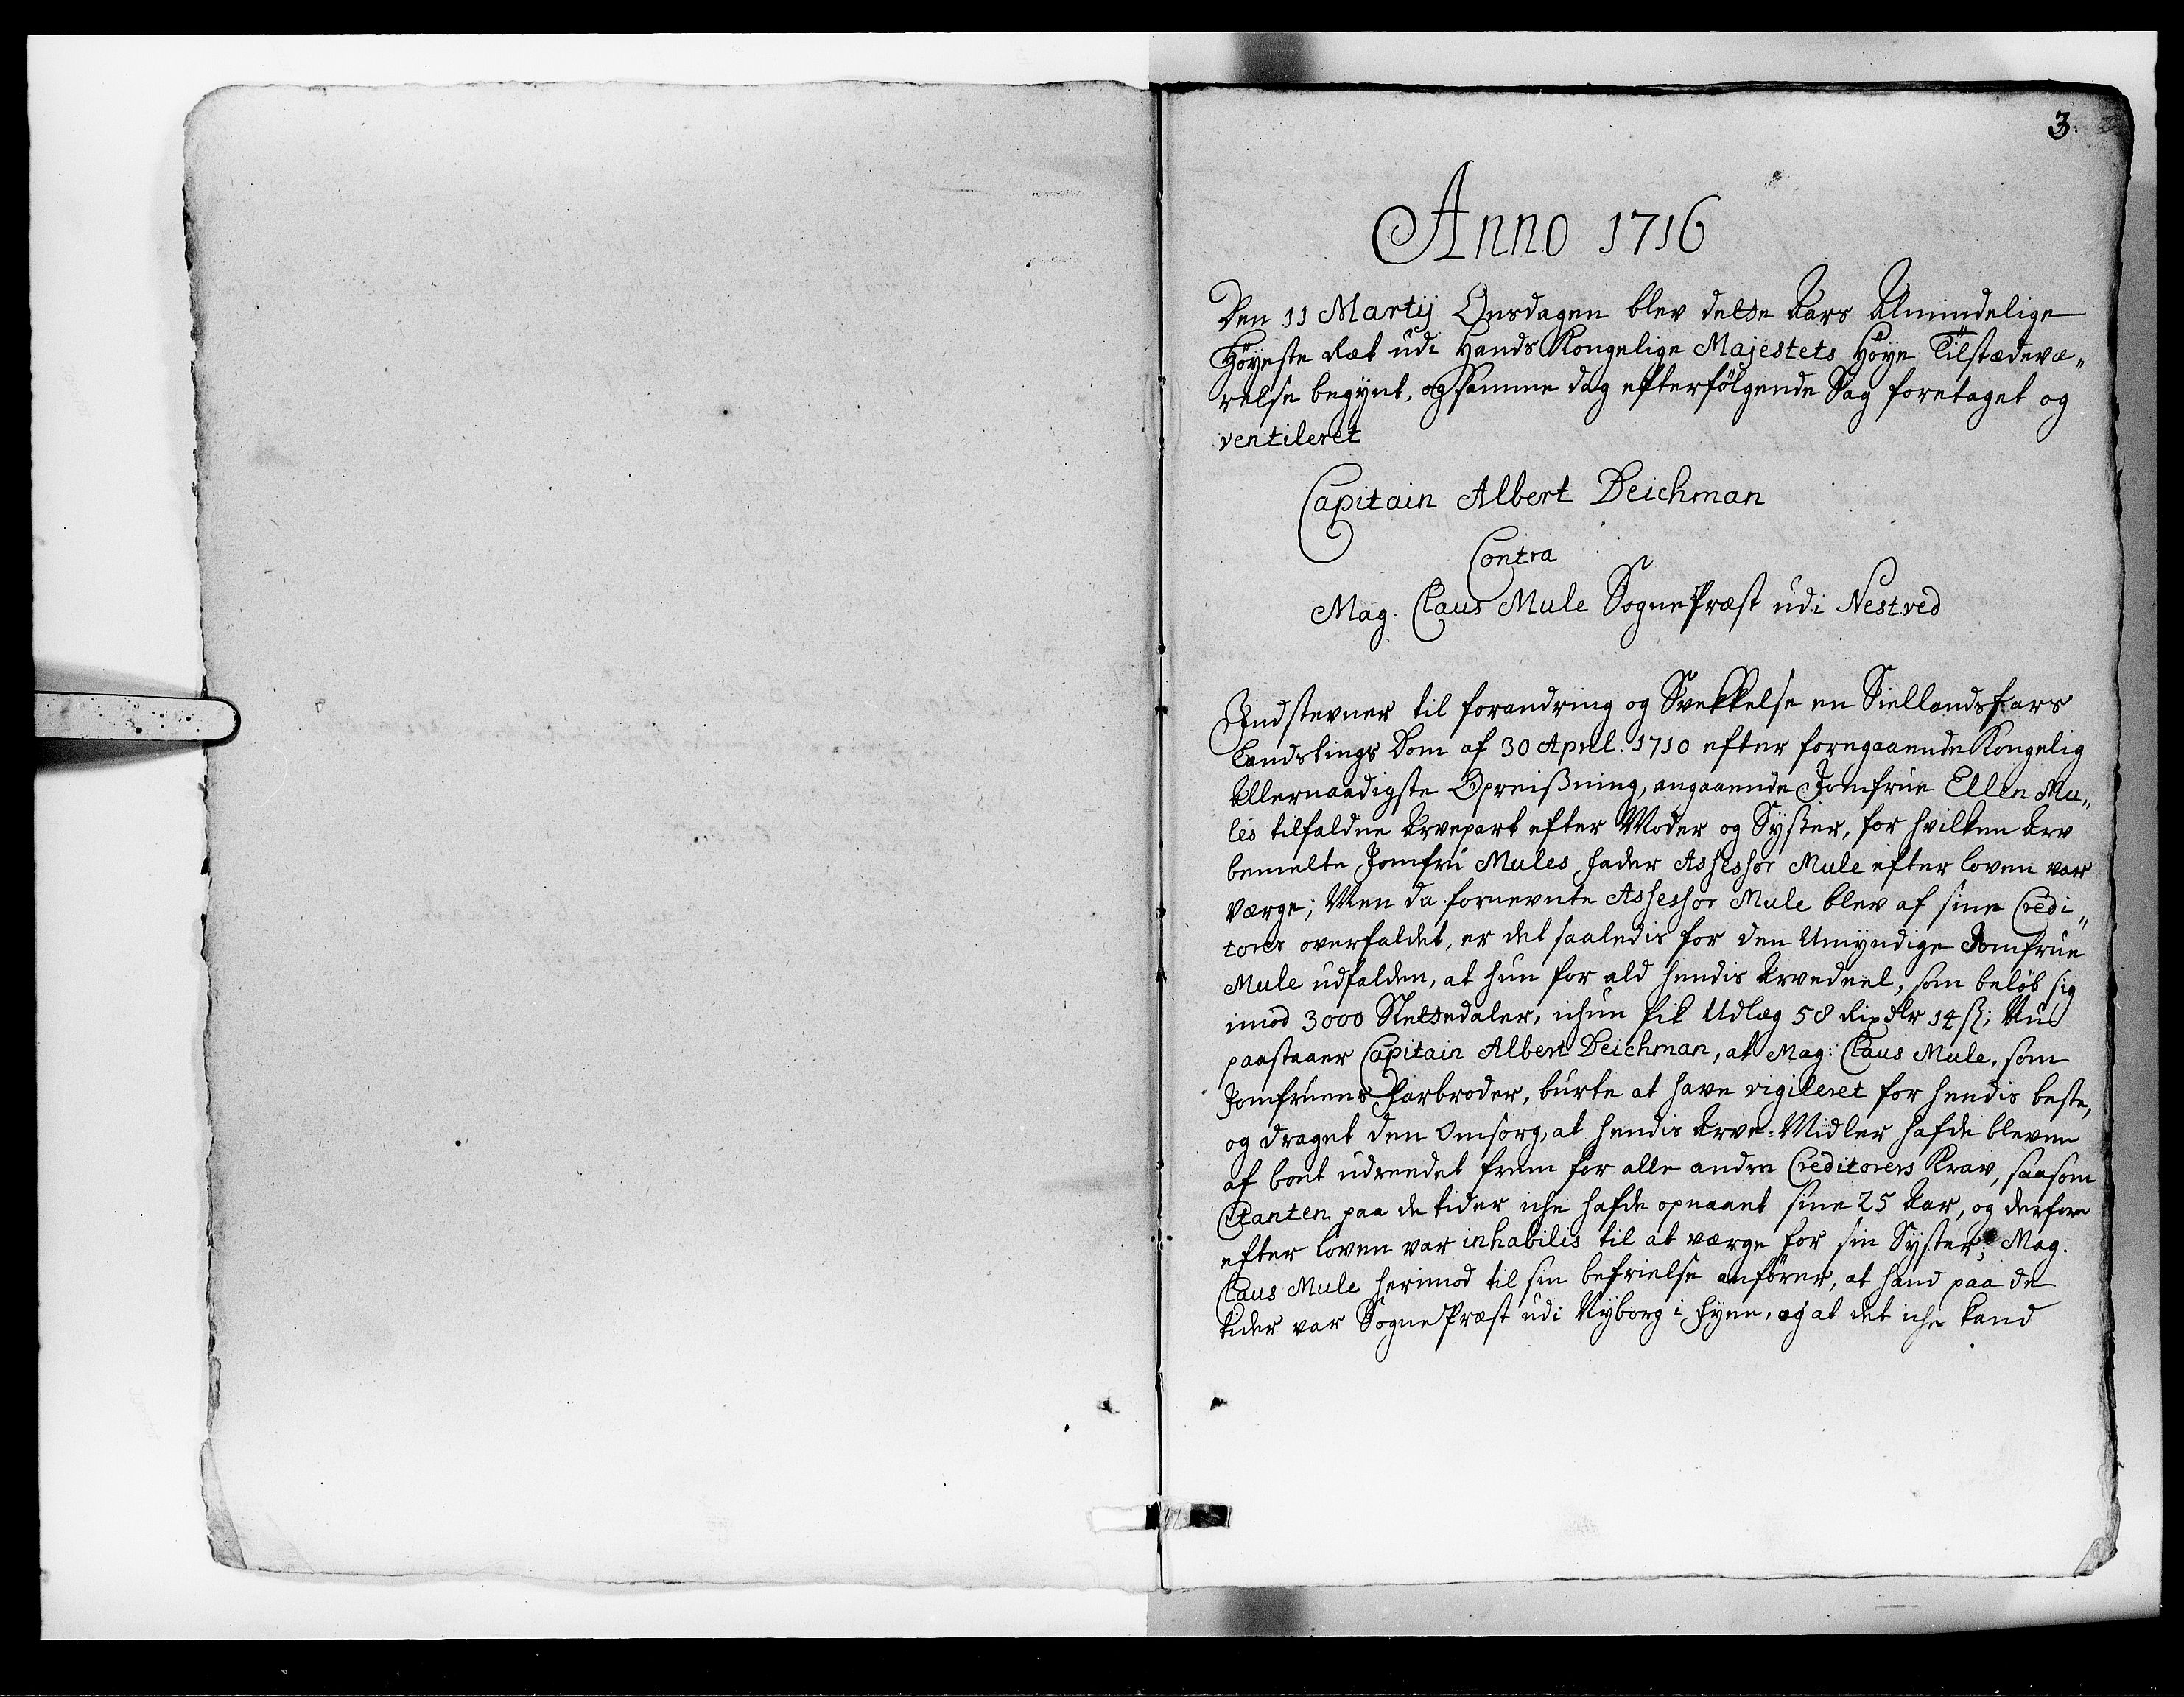 3.
Anno 1716
Den 11 Martij Onsdagen blev dette Aars Almindelige
Höyeste Ræt udi Hands Kongelige Majestets Höye Tilstædevæ„
relse begynt, og samme dag efterfölgende Sag foretaget og
ventileret
Capitain Albert Deichman
Contra
Mag. Claus Mule SognePræst udi Nestved
Indstevner til forandring og Svekkelse en Siellandsfars
Landstings Dom af 30 April. 1710 efter foregaaende Kongelig
Allernaadigste Opreißning, angaaende Jomfrue Ellen Mu„
les tilfaldne Arvepart efter Moder og Syster, for hvilken Arv
bemelte Jomfru Mules fader Assessor Mule efter loven var
Værge; Men da fornevnte Assessor Mule blev af sine Credi„
tores overfaldet, er det saaledis for den Umyndige Jomfrue
Mule udfalden, at hun for ald hendis Arvedeel, som belöb sig
imod 3000 Sletdedaler, ichun fik Udlæg 58 Rixdlr 14 ß; Nu
paastaaer Capitain Albert Deichman, at Mag: Claus Mule, som
Jomfruens Farbroder, burte at have vigileret for hendis beste,
og draget den Omsorg, at hendis Arve-Midler hafde bleven
af boet udreedet frem for alle andre Creditorers Krav, saasom
Citanten paa de tider iche hafde opnaaet sine 25 Aar, og derfore
efter loven var inhabilis til at værge for sin Syster; Mag.
Claus Mule herimod til sin befrielse anförer, at hand paa de
tider var SognePræst udi Nyborg i Fyen, og at det iche kand